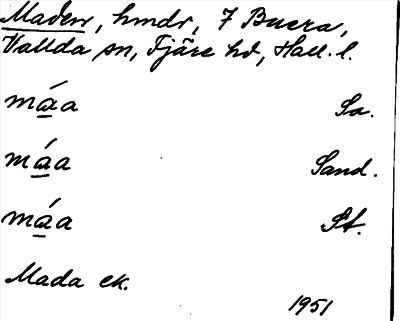 Maden, hmdr, 7 Buera,
Vallda sn, Fjäre hd, Hall. l.
má̱a Sa.
má̱a Sand.
má̱a St.
Mada ek.
1951